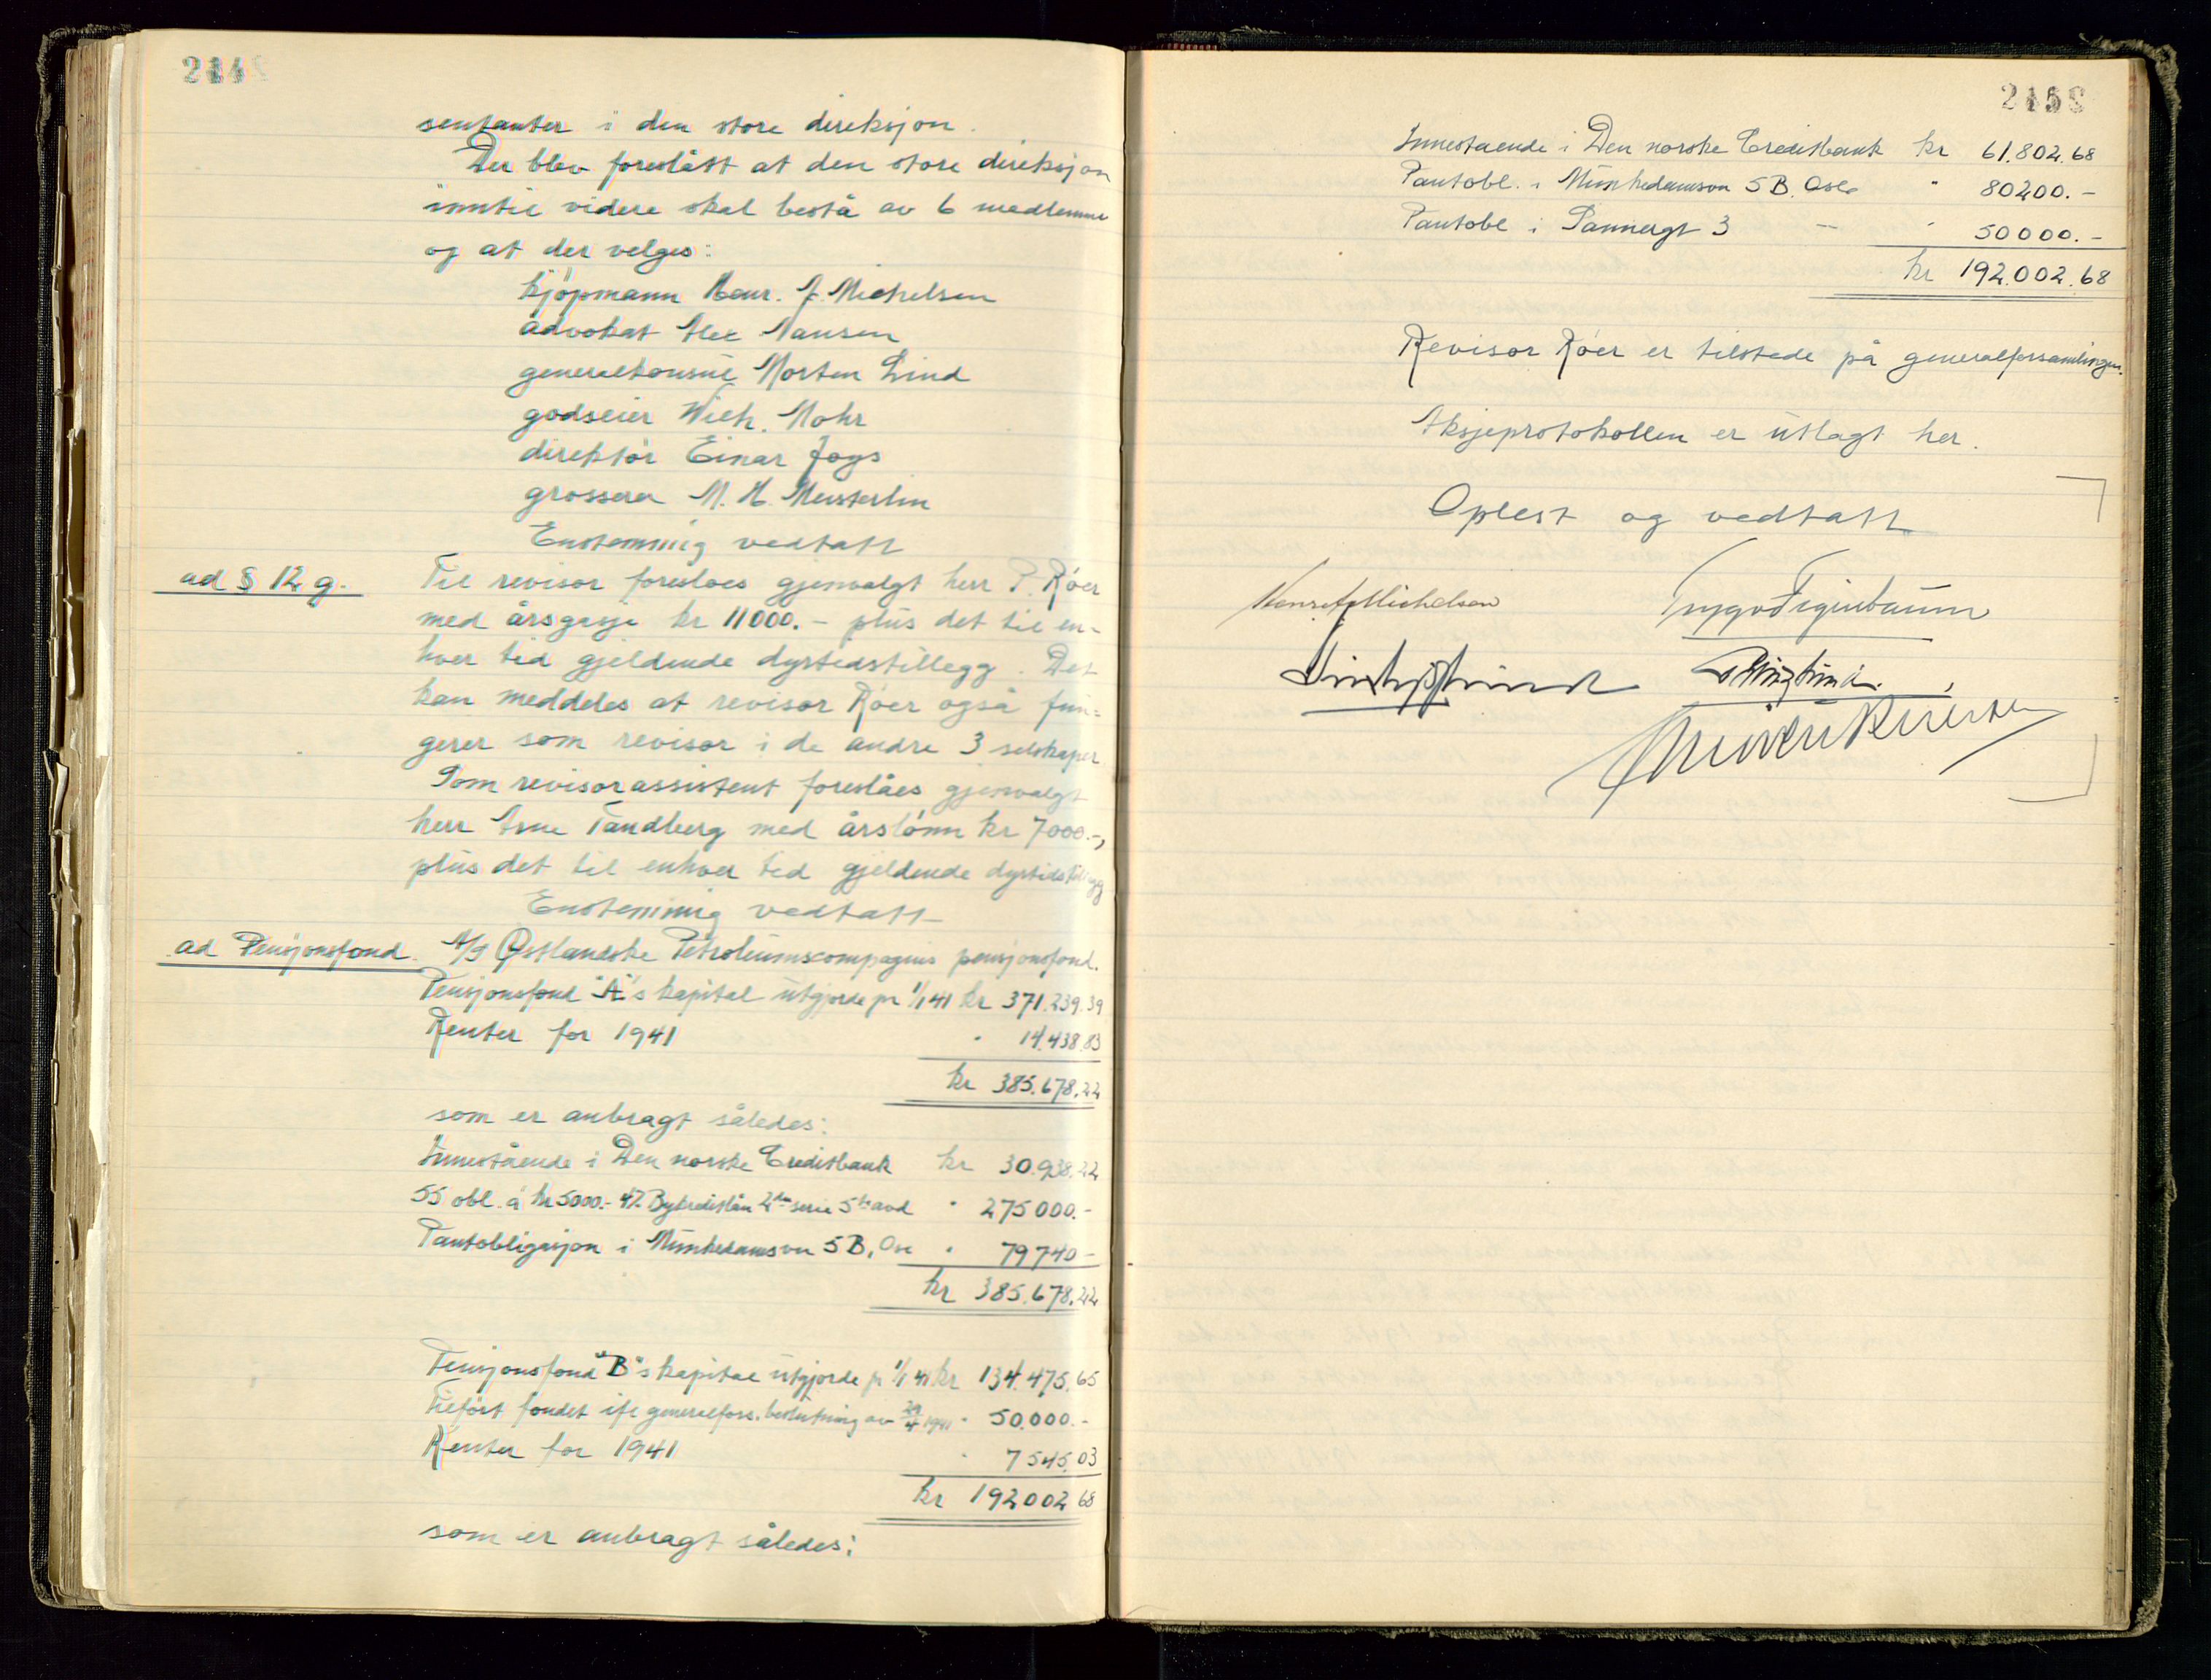 sentanter i den store direksjon.
Der blev foreslått at den store direksjon
inntil videre skal bestå av 6 medlemmer
og at der velges:
kjöpmann Henr. J. Michelsen
advokat Alex Nansen
generalkonsul Morten Lind
godseier Wilh. Mohr
direktör Einar
grosserer M. H.
Enstemmig vedtatt
ad § 12 g. Til revisor foresloes gjenvalgt herr P. Röer
med årsgasje kr 11000.- plus det til en-
hver tid gjeldende dyrtidstillegg. Det
kan meddeles at revisor Röer også fun-
gerer som revisor i de andre 3 selskaper
Som revisorassistent foreslåes gjenvalgt
herr Arne Tandberg med årslönn kr 7000.-,
plus det til enhver tid gjeldende dyrtidstillegg
Enstemmig vedtatt
ad Pensjonsfond. A/S Östlandske Petroleumscompagnis pensjonsfond.
Pensjonsfond "A"s kapital utgjorde pr 1/1 41 kr 371.239.39
Renter for 1941 " 14.438.83
kr 385.678.22
som er anbragt således:
Innestående i Den norske Creditbank kr 30.938.22
55 obl. á kr 5000.- 4% Bykreditlån 2den serie 5te avd " 275000.-
Pantobligasjon i Munkedamsvn 5 B, " 79740-
kr 385.678.22
Pensjonsfond "B"s kapital utgjorde pr 1/1 41 kr 134.475.65
Tilfört fondet ifl generalfors. beslutning av 29/4 1941 " 50.000.-
Renter for 1941 " 7545.03
kr 192002 68
som er anbragt således:
Innestaende i Den norske Creditbank kr 61.802.68
Pantobl. i Munkedamsvn 5 B. Oslo " 80200.-
Pantobl i 3 — " 50000.-
kr 192.002.68
Revisor Röer er tilstede på generalforsamlingen.
Aksjeprotokollen er utlagt her.
Oplest og vedtatt
Henr. J. Michelsen